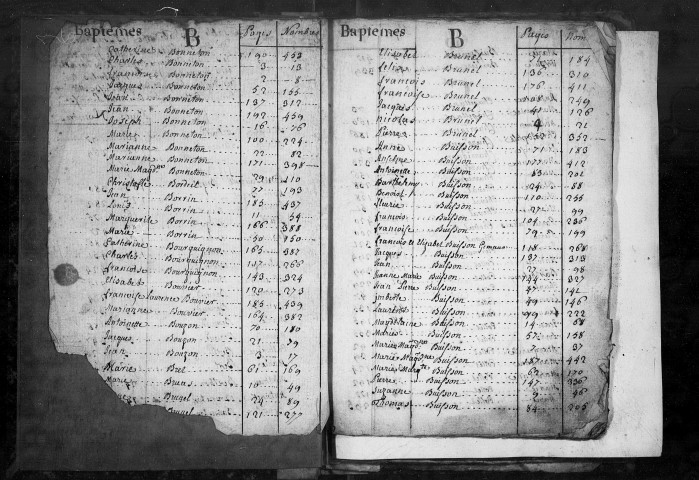 Baptemes B Pages Nombres
Catherine Bonneton 190 453
Charles Bonneton 3 13
François Bonneton 2 8
Jacques Bonneton 52 155
Jean Bonneton 137 312
Jean Bonneton 192 459
Joseph Bonneton 16 76
Marie Bonneton 100 224
Marianne Bonneton 22 82
Marianne Bonneton 171 398
Marie Magd.ne Bonneton 29 110
Christofle 77 193
Jean Borrin 185 437
Louis Borrin 11 54
Marguerite Borrin 166 388
Marie Borrin 50 150
Catherine Bourquignon 165 387
Charles Bourquignon 117 266
Françoise Bourquignon 143 324
Elisabet Bouvier 120 273
Françoise Laurence Bouvier 185 439
Marianne Bouvier 164 382
Antoinette Bouzon 70 180
Jacques Bouzon 21 79
Jean Bouzon 3 17
Marie Bret 61 169
Marie Bruns 10 49
Brugel 24 89
Brugel 121 277
Baptemes B Pages Nom
Elisabet Brunel 184
Felix Brunel 136 310
François Brunel 176 411
Françoise Brunel 108 249
Jacques Brunel 126
Nicolas Brunel 4 21
Pierre Brunel 352
Anne Buisson 71 183
Anselme Buisson 177 412
Antoinette Buisson 83 201
Barthelemy Buisson 24 88
Benoist Buisson 110 255
Claire Buisson 27 99
François Buisson 104 236
Françoise Buisson 79 199
François et Elizabet Buisson Gemaux 118 268
Jacques Buisson 137 313
Jean Buisson 27 98
Jeanne Marie Buisson 144 327
Jean Buisson 47 141
Buisson 49 146
Laurent Buisson 99 222
Magdelaine Buisson 14 68
Marie Buisson 57 158
Marie Magd.ne Buisson 7 37
Marie Magd.ne Buisson 187 442
Marie Buisson 62 170
Pierre Buisson 147 336
Suzanne Buisson 9 46
Thomas Buisson 84 205